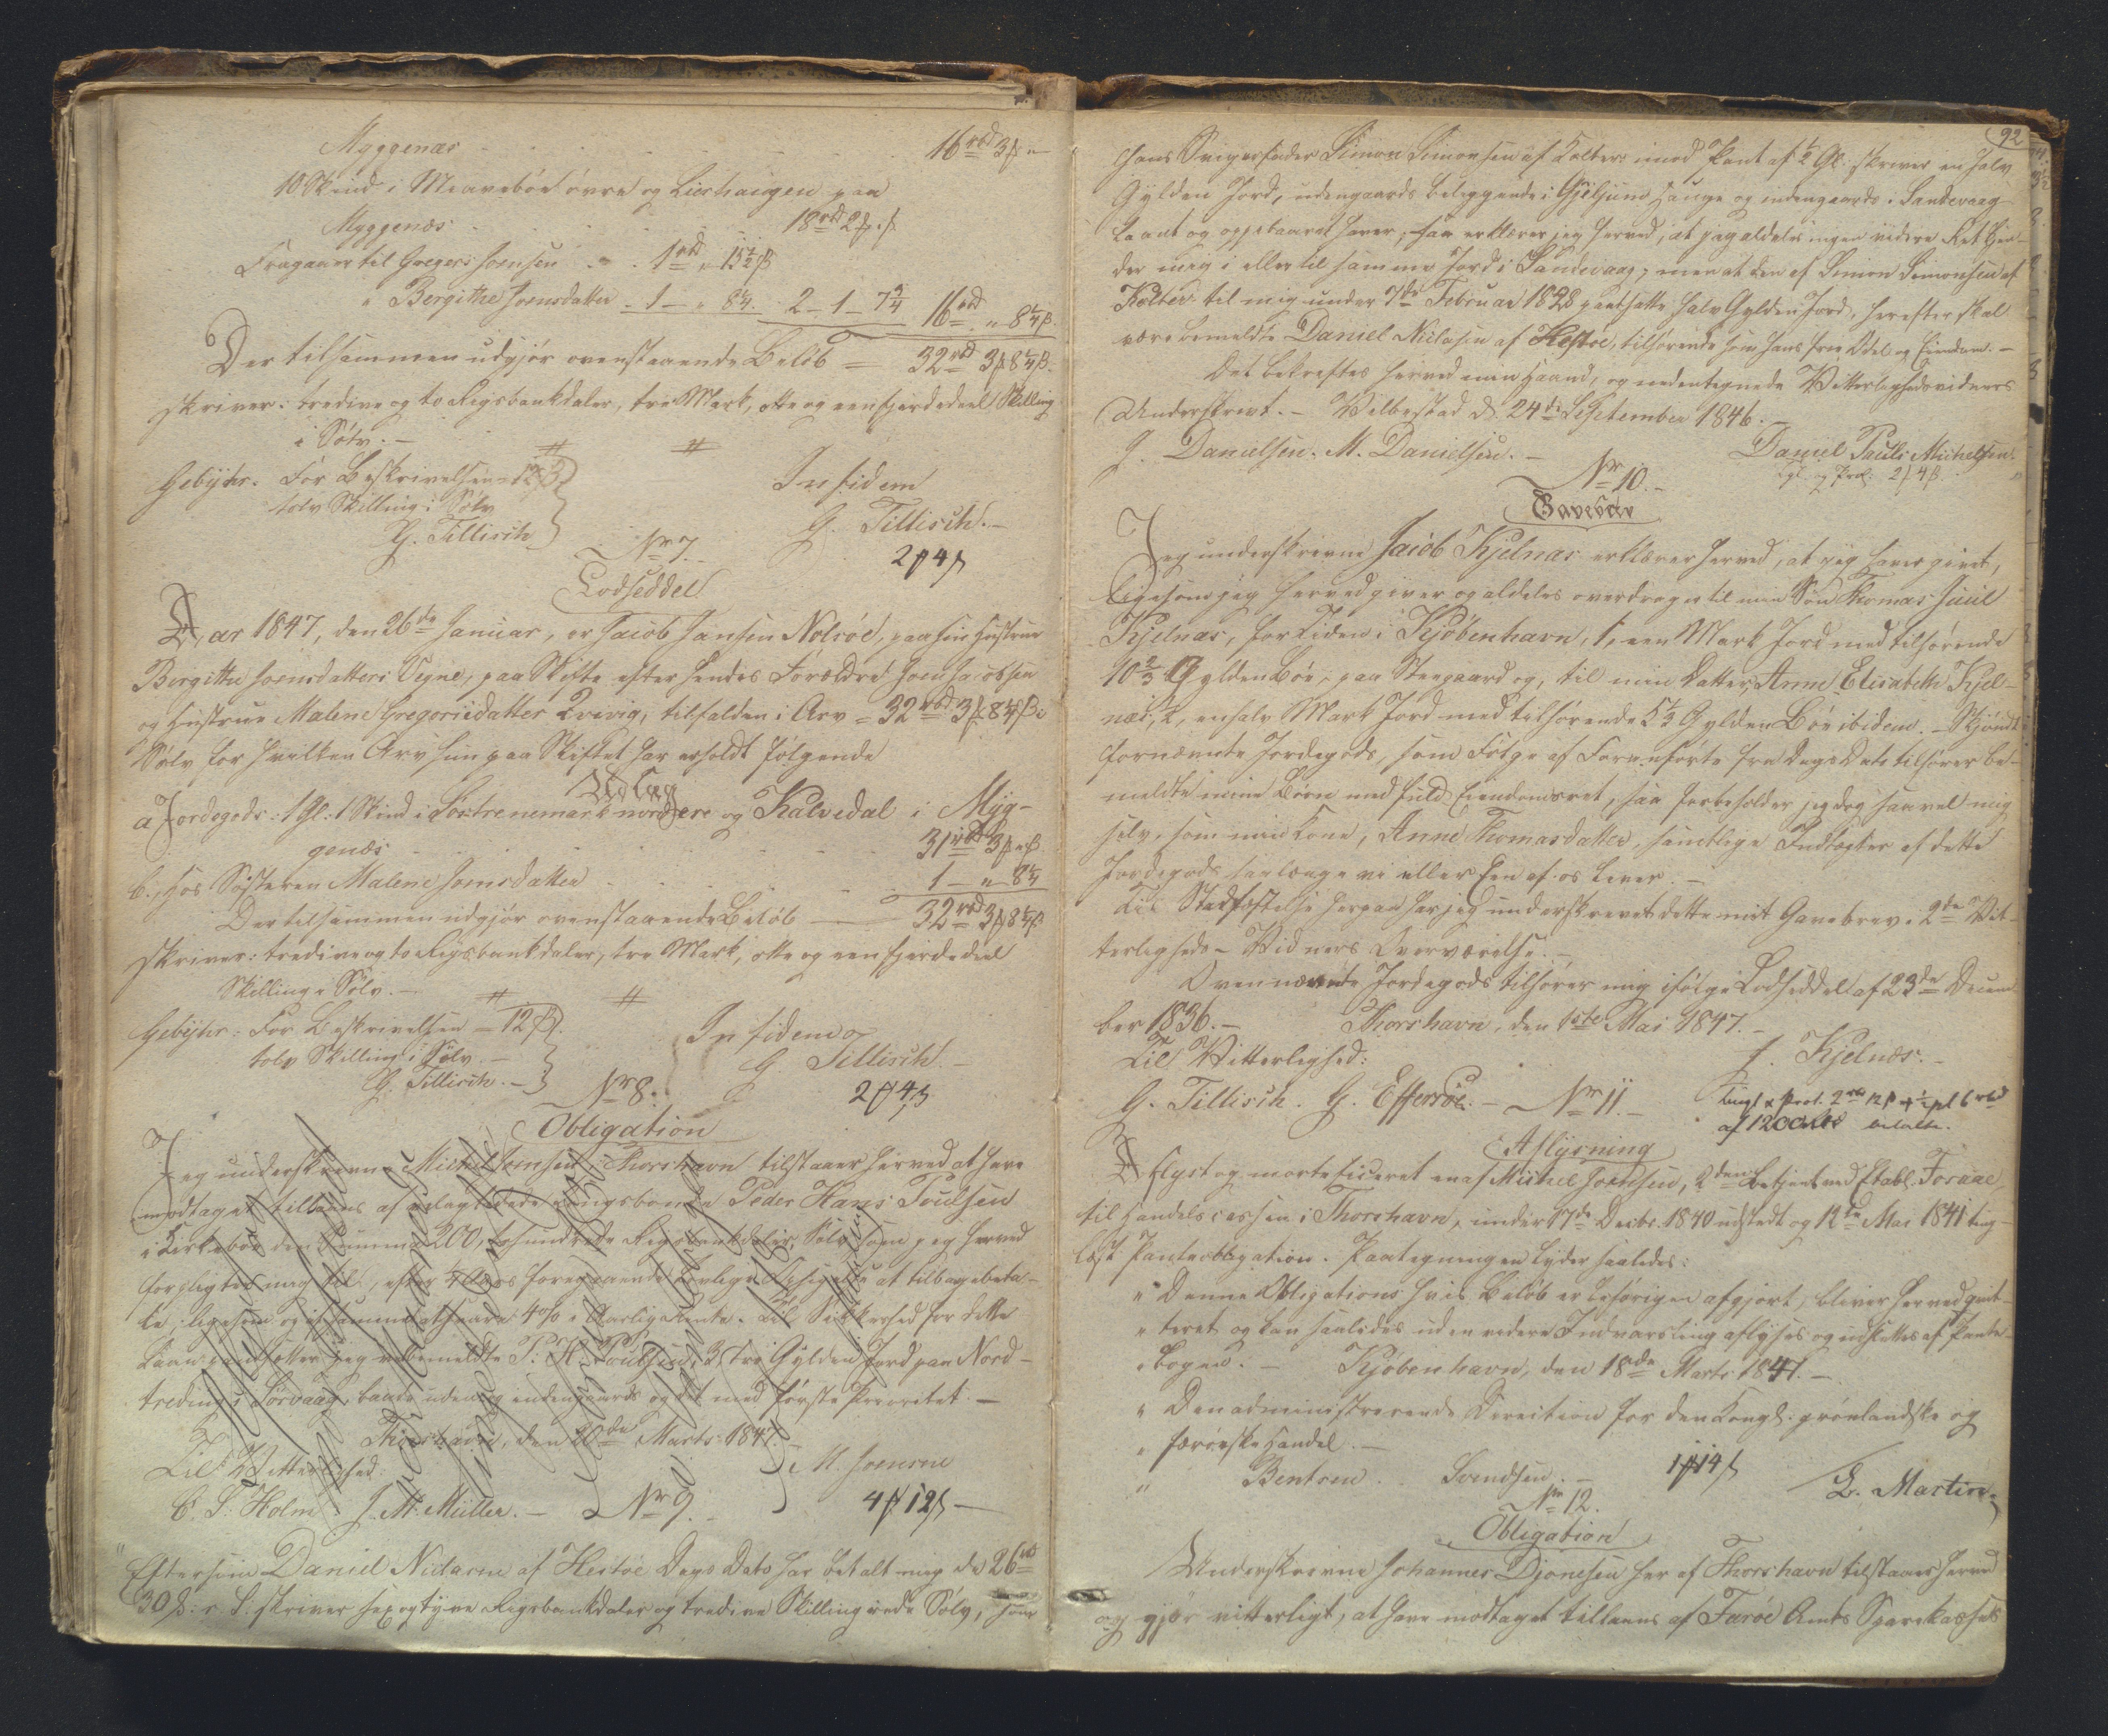 Myggenæs . . . . . 16 rbd 3 ℳ "
10 Skind i Meavebøe øvre og Liushaugen paa
Myggenæs . . . 18 rbd 2 ℳ
Fragaaer til Gregers Joensen . . 1 rbd " 15½ β
" Bergithe Joensdatter - 1 - " 8¼. 2 - 1 - 7¾ 16 rbd " 8¼ β.
Der tilsammen udgjør ovenstaaende Beløb = 32 rbd 3 ℳ 8¼ β.
skriver: tredive og to Rigsbankdaler, tre Mark, otte og een fjerdedeel Skilling
i Sølv. —
Gebyhr. For Beskrivelsen = 12 β
tolv Skilling i Sølv
G. Tillisch
In fidem
G. Tillisch. —
2 ℳ 4 β
No 7.
Lodseddel
Aar 1847, den 26de Januar, er Jacob Jansen Nolsöe, paa sin Hustrue
Bergitte Joensdatters Vegne, paa Skifte efter hendes Forældre Joen Jacobsen
og Hustrue Malene Gregoriidatter Qvivig, tilfalden i Arv = 32 rbd 3 ℳ 8¼ β i
Sølv for hvilken Arv hun paa Skiftet har erholdt følgende
Udlæg
a Jordegods: 1 Gl. 1 Skind i Lörtrenemark nordere og Kalvedal i Myg-
genæs . . . . . 31 rbd 3 ℳ " β
b., Hos Søsteren Malene Joensdatter . . . 1 - " 8¼
Der tilsammen udgjør ovenstaaende Beløb — 32 rbd 3 ℳ 8¼ β.
skriver: tredive og to Rigsbankdaler, tre Mark, otte og een fjerdedeel
Skilling i Sølv. —
Gebyhr: For Beskrivelsen = 12 β.
tolv Skilling i Sølv. —
G. Tillisch. —
In fidem
G. Tillisch. —
2 ℳ 4 β
No 8.
Obligation
Jeg underskrevne Michel Joensen i Thorshavn tilstaaer herved at have
modtaget tillaans af Kongsbonde Peder Hans Poulsen
i Kirkebøe den Summa 200, tohundrede Rigsbankdaler Sølv, som jeg herved
forpligter mig til, efter foregaaende lovlige Opsigelse at tilbagebeta-
le, ligesom og af samme at svare 4 % i aarlig Rente. Til Sikkerhed for dette
Laan pantsætter jeg velbemeldte P. H. Poulsen, 3, tre Gylden Jord paa Nord-
treding i Sørvaag, baade uden og indengaards og det med første Prioritet. —
Thorshavn, den 20de Marts 1847. —
Til Vitterlighed:
M. Joensen
C. S. Holm J. M. Müller. —
No 9.
4 ℳ 12 β —
" Eftersom Daniel Niclasen af Hestöe Dags Dato har betalt mig de 26 rbd
30 β: r. S. skriver sexogtyve Rigsbankdaler og tredive Skilling rede Sølv, som
92
hans Svigerfader Simon Simonsen af Kolter imod Pant af ½ Gl. skriver en halv
Gylden Jord, udengaards beliggende i Gjeljum Hauge og indengaards i Sandevaag
laant og oppebaaret haver, saa erklærer jeg herved, at jeg aldeles ingen videre Ret tilen-
der mig i eller til samme Jord i Sandevaag; men at den af Simon Simonsen af
Kolter til mig under 7de Februar 1828 pantsatte halv Gylden Jord, herefter skal
være bemeldte Daniel Niclasen af Hestoe, tilhørende som hans frie Odel og Eiendom. —
Det bekræftes herved min Haand, og nedentegnede Vitterlighedsvidners
Underskrivt. — Velbestad d. 24de September 1846.
J. Danielsen. M. Danielsen. —
Daniel Pauli Michelsen.
2 ℳ 4 β.
No 10. —
Gavebrev
Jeg underskrevne Jacob Kjelnæs erklærer herved, at jeg haver givet,
ligesom jeg herved giver og aldeles overdrager til min Søn Thomas Juul
Kjelnæs, for Tiden i Kjøbenhavn, 1, een Mark Jord med tilhørende
10⅔ Gylden Bøe, paa Steegaard og, til min Datter, Anne Elisabeth Kjel-
næs, ½, en halv Mark Jord med tilhørende 5⅓ Gylden Bøe ibidem. — Skjøndt
fornævnte Jordegods, som Følge af Foranførte fra Dags Dato tilhører be-
meldte mine Børn med fuld Eiendomsret, saa forbeholder jeg dog saavel mig
selv, som min Kone, Anne Thomasdatter, samtlige Indtægter af dette
Jordegods saalænge vi eller Een af os lever. —
Til Stadfæstelse herpaa har jeg underskrevet dette mit Gavebrev i 2de Vit-
terligheds-Vidners Overværelse. —
Ovennævnte Jordegods tilhører mig ifølge Lodseddel af 23de Decem
ber 1836. — Thorshavn, den 1ste Mai 1847. —
Til Vitterlighed:
J. Kjelnæs. —
G. Tillisch. G. Effersöe. —
No 11. —
Tingl. & Prot. 2 rbd 12 β + ½ pCt 6 rbd
af 1200 rbd betalte.
Aflysning
Aflyst og mortificeret en af Michel Joensen, 2den Betjent ved Etabl. Foraae,
til Handelscassen i Thorshavn, under 17de Decbr. 1840 udstedt og 12te Mai 1841 ting-
læst Panteobligation. Paategningen lyder saaledes:
" Denne Obligations hvis Beløb er behørigen afgjort, bliver herved qvit-
" teret og kan saaledes uden videre Indvarsling aflyses og udslettes af Pante
" bogen. — Kjøbenhavn, den 18de Marts 1847. —
" Den administrerende Direction for den Kongl. grønlandske og
" færøeske Handel. —
" Bentsen . . Svendsen. —
1 ℳ 14 β
L. Martin.
No 12.
Obligation
Underskrevne Johannes Djonesen her af Thorshavn tilstaaer herved
og gjør vitterligt, at have modtaget tillaans af Færöe Amts Sparekasses